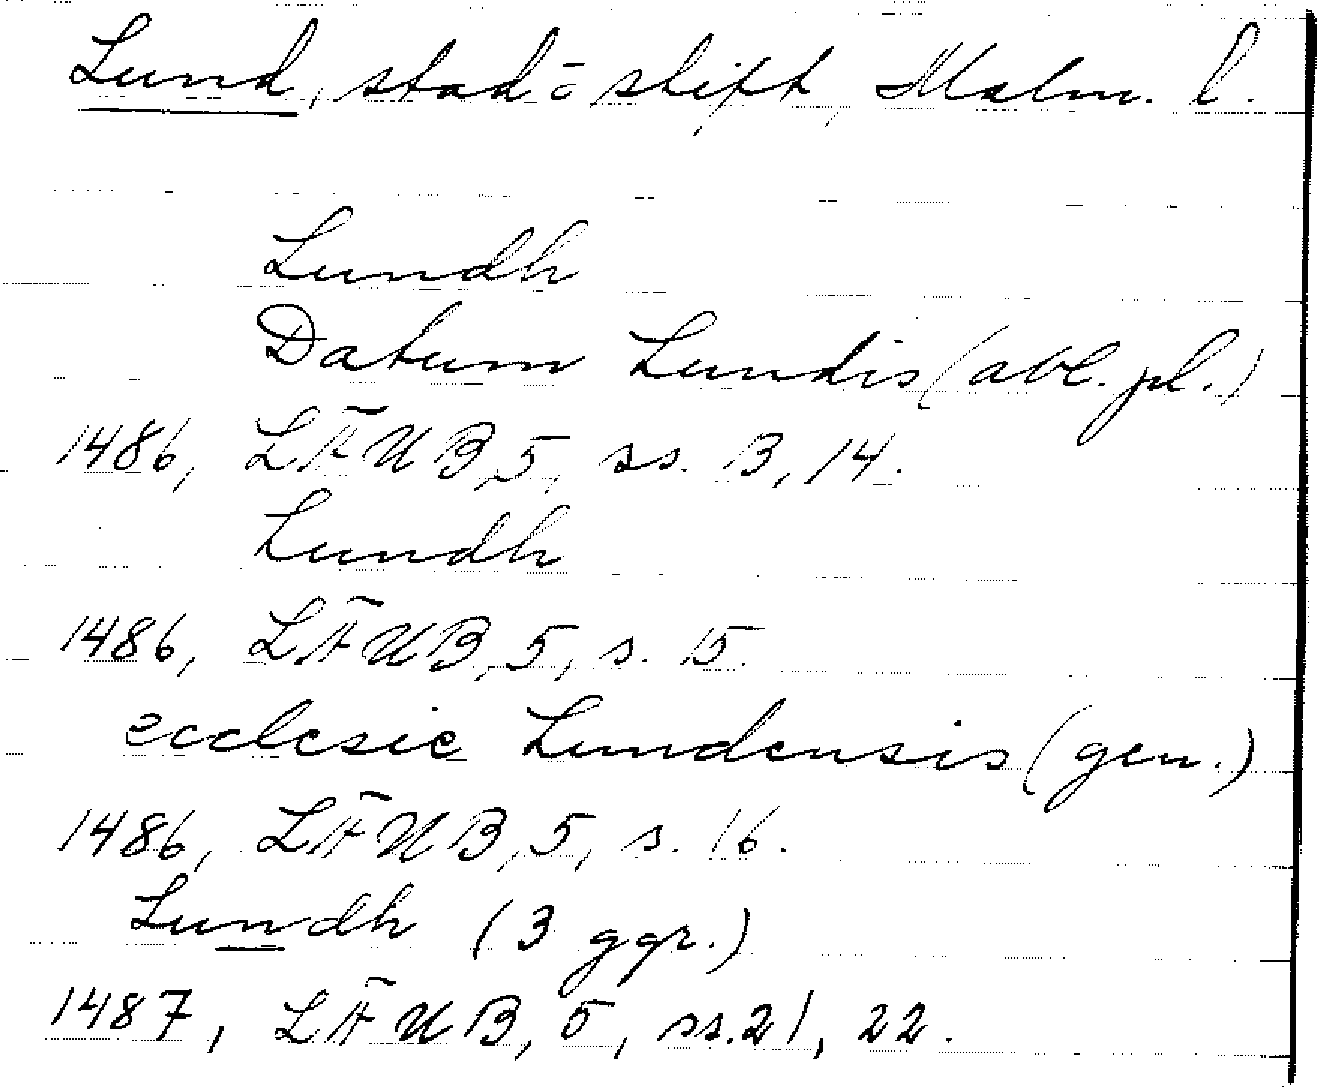 Lund, stad o stift, Malm. l.
Lundh
Datum Lundis (abl. pl.)
1486, LÄUB, 5, ss. 13, 14.
Lundh
1486, LÄUB, 5, s. 15.
ecclesie Lundensis (gen.)
1486, LÄUB, 5, s. 16.
Lundh (3 ggr.)
1487, LÄUB, 5, ss. 21, 22.